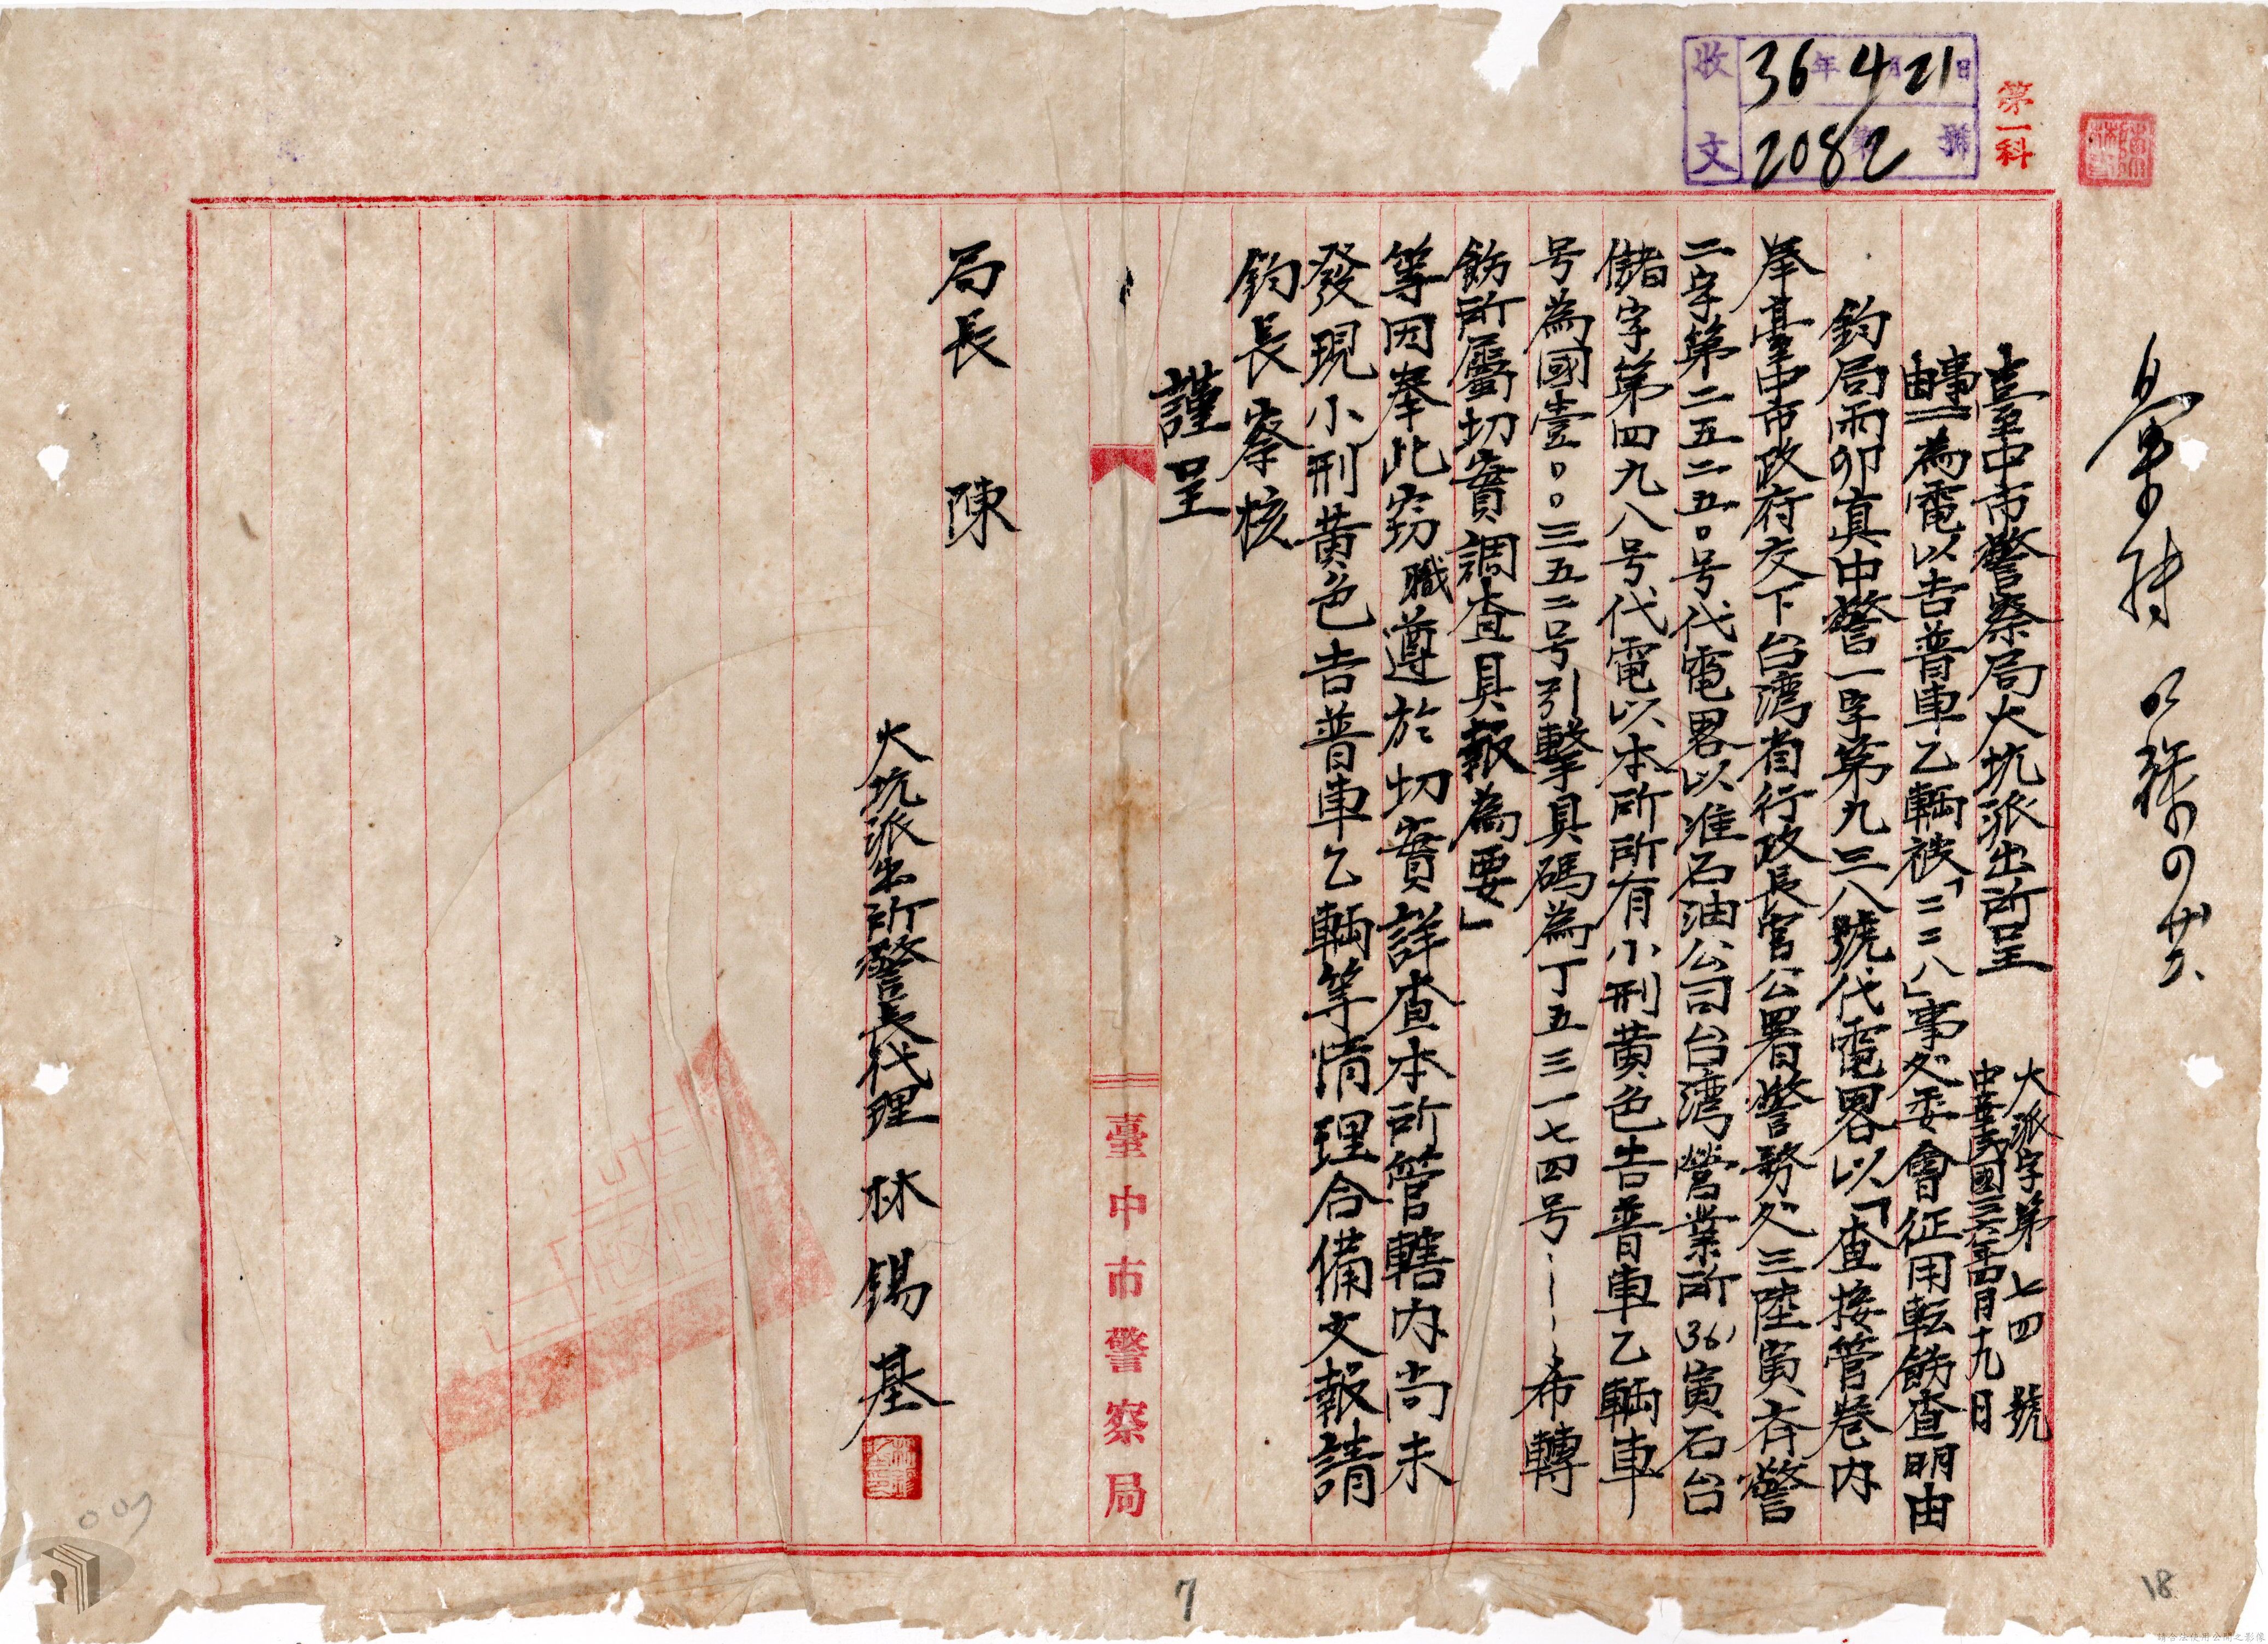 收文
36年4月21日
第2082號
第一科
臺中市警察局大坑派出所呈
大派字第七四號
中華民國三六年四月十九日
事由
為電以吉普車乙輛被「二二八」事処委會征用転飭查明由
鈞局丙卯真中警一字第九三八號代電畧以「查接管卷內
奉臺中市政府交下台湾省行政長官公署警務処三陸寅齐警
二字第二五二五〇号代電畧以准石油公司台湾營業所(36)寅石台
儲字第四九八号代電以本所所有小刑黄色吉普車乙輛車
号為國壹〇〇三五二号引擊具碼為丁五三一七四号……希轉
飭所屬切實調查具報為要」
等因奉此窃職遵於切實詳查本所管轄內尚未
發現小刑黄色吉普車乙輛等情理合備文報請
鈞長察核
謹呈
局長 陳
大坑派出所警長代理 林錫基
臺中市警察局
7
18
009
請合法使用公開之影像